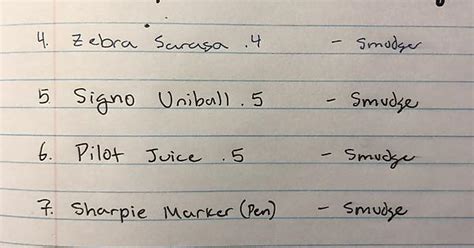 4. Zebra Sarasa .4 - Smudge
5 Signo Uniball .5 - Smudge
6. Pilot Juice .5 - Smudge
7. Sharpie Marker (Pen) - Smudge